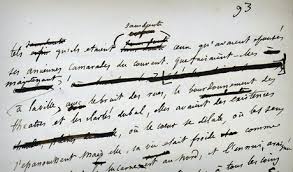 93
sans doute
tels qu'ils etaient ceux qu'avaient epousés
ses anciennes camarades du couvent. que faisaient-elles
maintenant
à la ville, avec le bruit des rues, le bourdonnement des
théatres et les clartés du bal, elles avaient des existences
où le cœur se dilate, où les sens
s'epanouissent mais elle, sa vie était froide comme
lucarne est au nord, et l'ennui, araig
à tous les coins